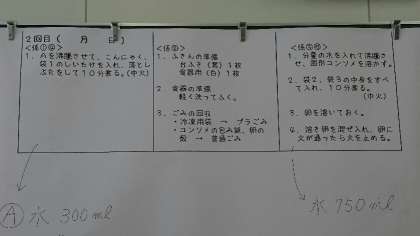 2回目(　月　日)
<係①④>
1. Aを沸騰させて、こんにゃく、
袋1のしいたけを入れ、落とし
ぶたをして10分煮る。(中火)
<係②>
1. ふきんの準備
台ふき(青)1枚
食器用(白)1枚
2. 食器の準備
軽く洗ってふく。
3. ごみの回収
・冷凍用袋 → プラごみ
・コンソメの包み紙、卵の
殻 → 普通ごみ
<係③⑤>
1. 分量の水を入れて沸騰さ
せ、固形コンソメを溶かす。
2. 袋2、袋3の中身をすべ
て入れ、10分煮る。
(中火)
3. 卵を溶いておく。
4. 溶き卵を混ぜ入れ、卵に
火が通ったら火を止める。
Ⓐ 水 300ml
水 750ml